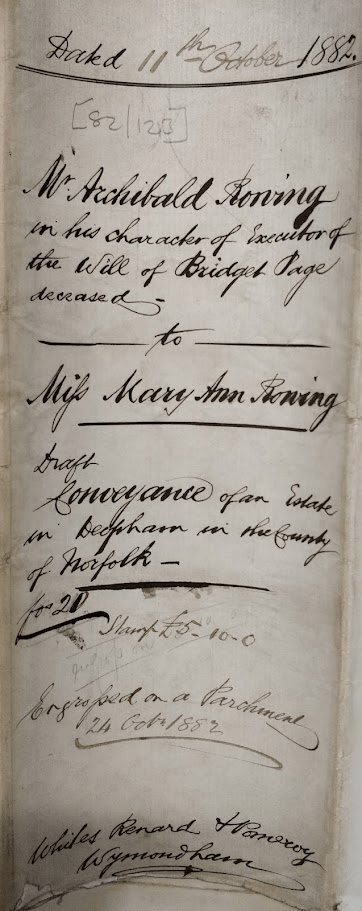 Dated 11th October 1882.
[82/123]
Mr Archibald Rowing
in his character of Executor of
the Will of Bridget Page
deceased -
to
Miss Mary Ann Rowing
Draft
Conveyance of an Estate
in Deopham in the County
of Norfolk -
fos 20
Stamp £5-10-0
Engrossed on a Parchment
24 Octr 1882
Whites Renard & Pomeroy
Wymondham